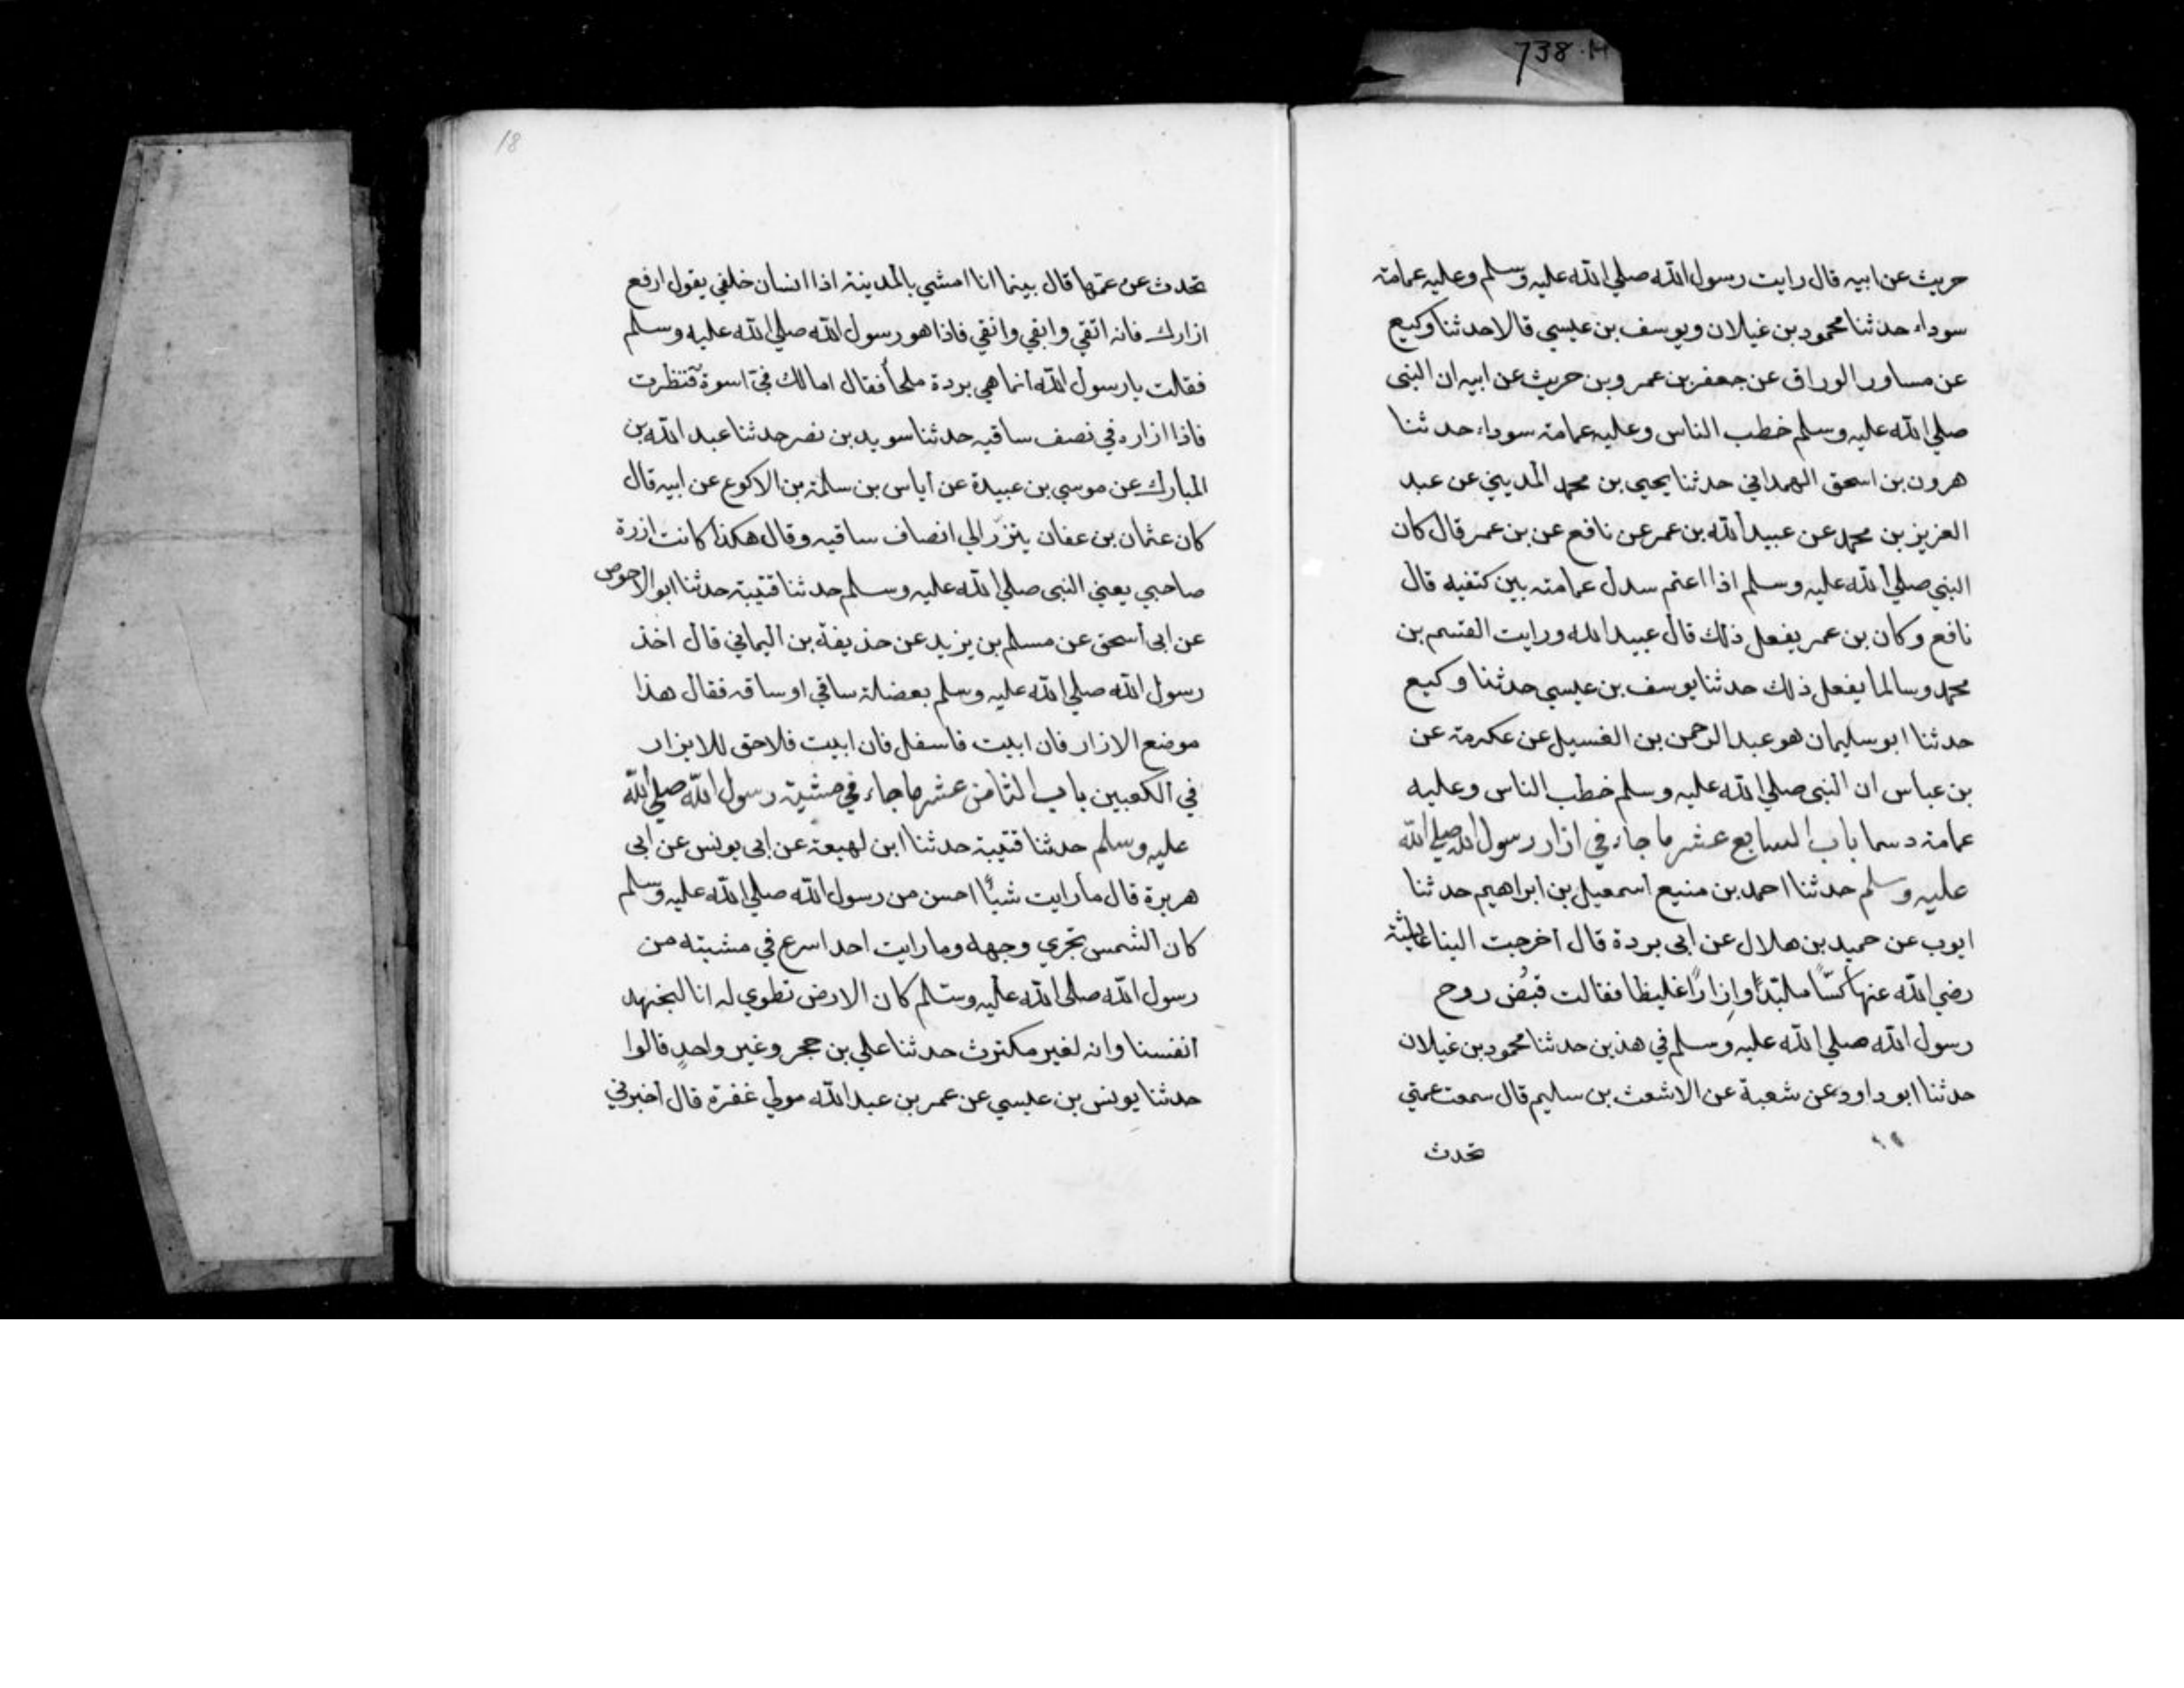 738·M
حريث عن ابيه قال رايت رسول الله صلي الله عليه وسلم وعليه عمامة
سوداء حدثنا محمود بن غيلان ويوسف بن عيسي قالا حدثنا وكيع
عن مساور الوراق عن جعفر بن عمرو بن حريث عن ابيه ان النبي
صلي الله عليه وسلم خطب الناس وعليه عمامة سوداء حدثنا
هرون بن اسحق الهمداني حدثنا يحيي بن محمد المديني عن عبد
العزيز بن محمد عن عبيد الله بن عمر عن نافع عن بن عمر قال كان
النبي صلي الله عليه وسلم اذا اعتم سدل عمامته بين كتفيه قال
نافع وكان بن عمر يفعل ذلك قال عبيد الله ورايت القسم بن
محمد وسالما يفعل ذلك حدثنا يوسف بن عيسي حدثنا وكيع
حدثنا ابو سليمان هو عبد الرحمن بن الغسيل عن عكرمة عن
بن عباس ان النبي صلي الله عليه وسلم خطب الناس وعليه
عمامة دسما باب السابع عشر ما جاء في ازار رسول الله صلي الله
عليه وسلم حدثنا احمد بن منيع اسمعيل بن ابراهيم حدثنا
ايوب عن حميد بن هلال عن ابي بردة قال اخرجت الينا عايشة
رضي الله عنها كسّاً ملبّداً وإزاراً غليظا فقالت قبُض روح
رسول الله صلي الله عليه وسلم في هذين حدثنا محمود بن غيلان
حدثنا ابو داود عن شعبة عن الاشعث بن سليم قال سمعت عمتي
تحدث
18
تحدث عن عمّها قال بينما انا امشي بالمدينة اذا انسان خلفي يقول ارفع
ازارك فانه اتقي وابقي وانقي فاذا هو رسول الله صلي الله عليه وسلم
فقلت يا رسول الله انما هي بردة ملحاً فقال امالك فيّ اسوة فنظرت
فاذا ازاره في نصف ساقيه حدثنا سويد بن نصر حدثنا عبد الله بن
المبارك عن موسي بن عبيدة عن اياس بن سلمة بن الاكوع عن ابيه قال
كان عثمان بن عفان يتزر الي انصاف ساقيه وقال هكذا كانت ازرة
صاحبي يعني النبي صلي الله عليه وسلم حدثنا قتيبة حدثنا ابو الاحوص
عن ابي اسحق عن مسلم بن يزيد عن حذيفة بن اليماني قال اخذ
رسول الله صلي الله عليه وسلم بعضلة ساقي او ساقه فقال هذا
موضع الازار فان ابيت فاسفل فان ابيت فلا حق للايزار
في الكعبين باب الثامن عشر ما جاء في مشية رسول الله صلي الله
عليه وسلم حدثنا قتيبة حدثنا ابن لهيعة عن ابي يونس عن ابي
هريرة قال ما رايت شياً احسن من رسول الله صلي الله عليه وسلم
كان الشمس تجري وجهه وما رايت احد اسرع في مشيته من
رسول الله صلي الله عليه وسلم كان الارض تطوي له انا لنجهد
انفسنا وانه لغير مكترث حدثنا علي بن حجر وغير واحدٍ قالوا
حدثنا يونس بن عيسي عن عمر بن عبد الله مولي غفرة قال اخبرني